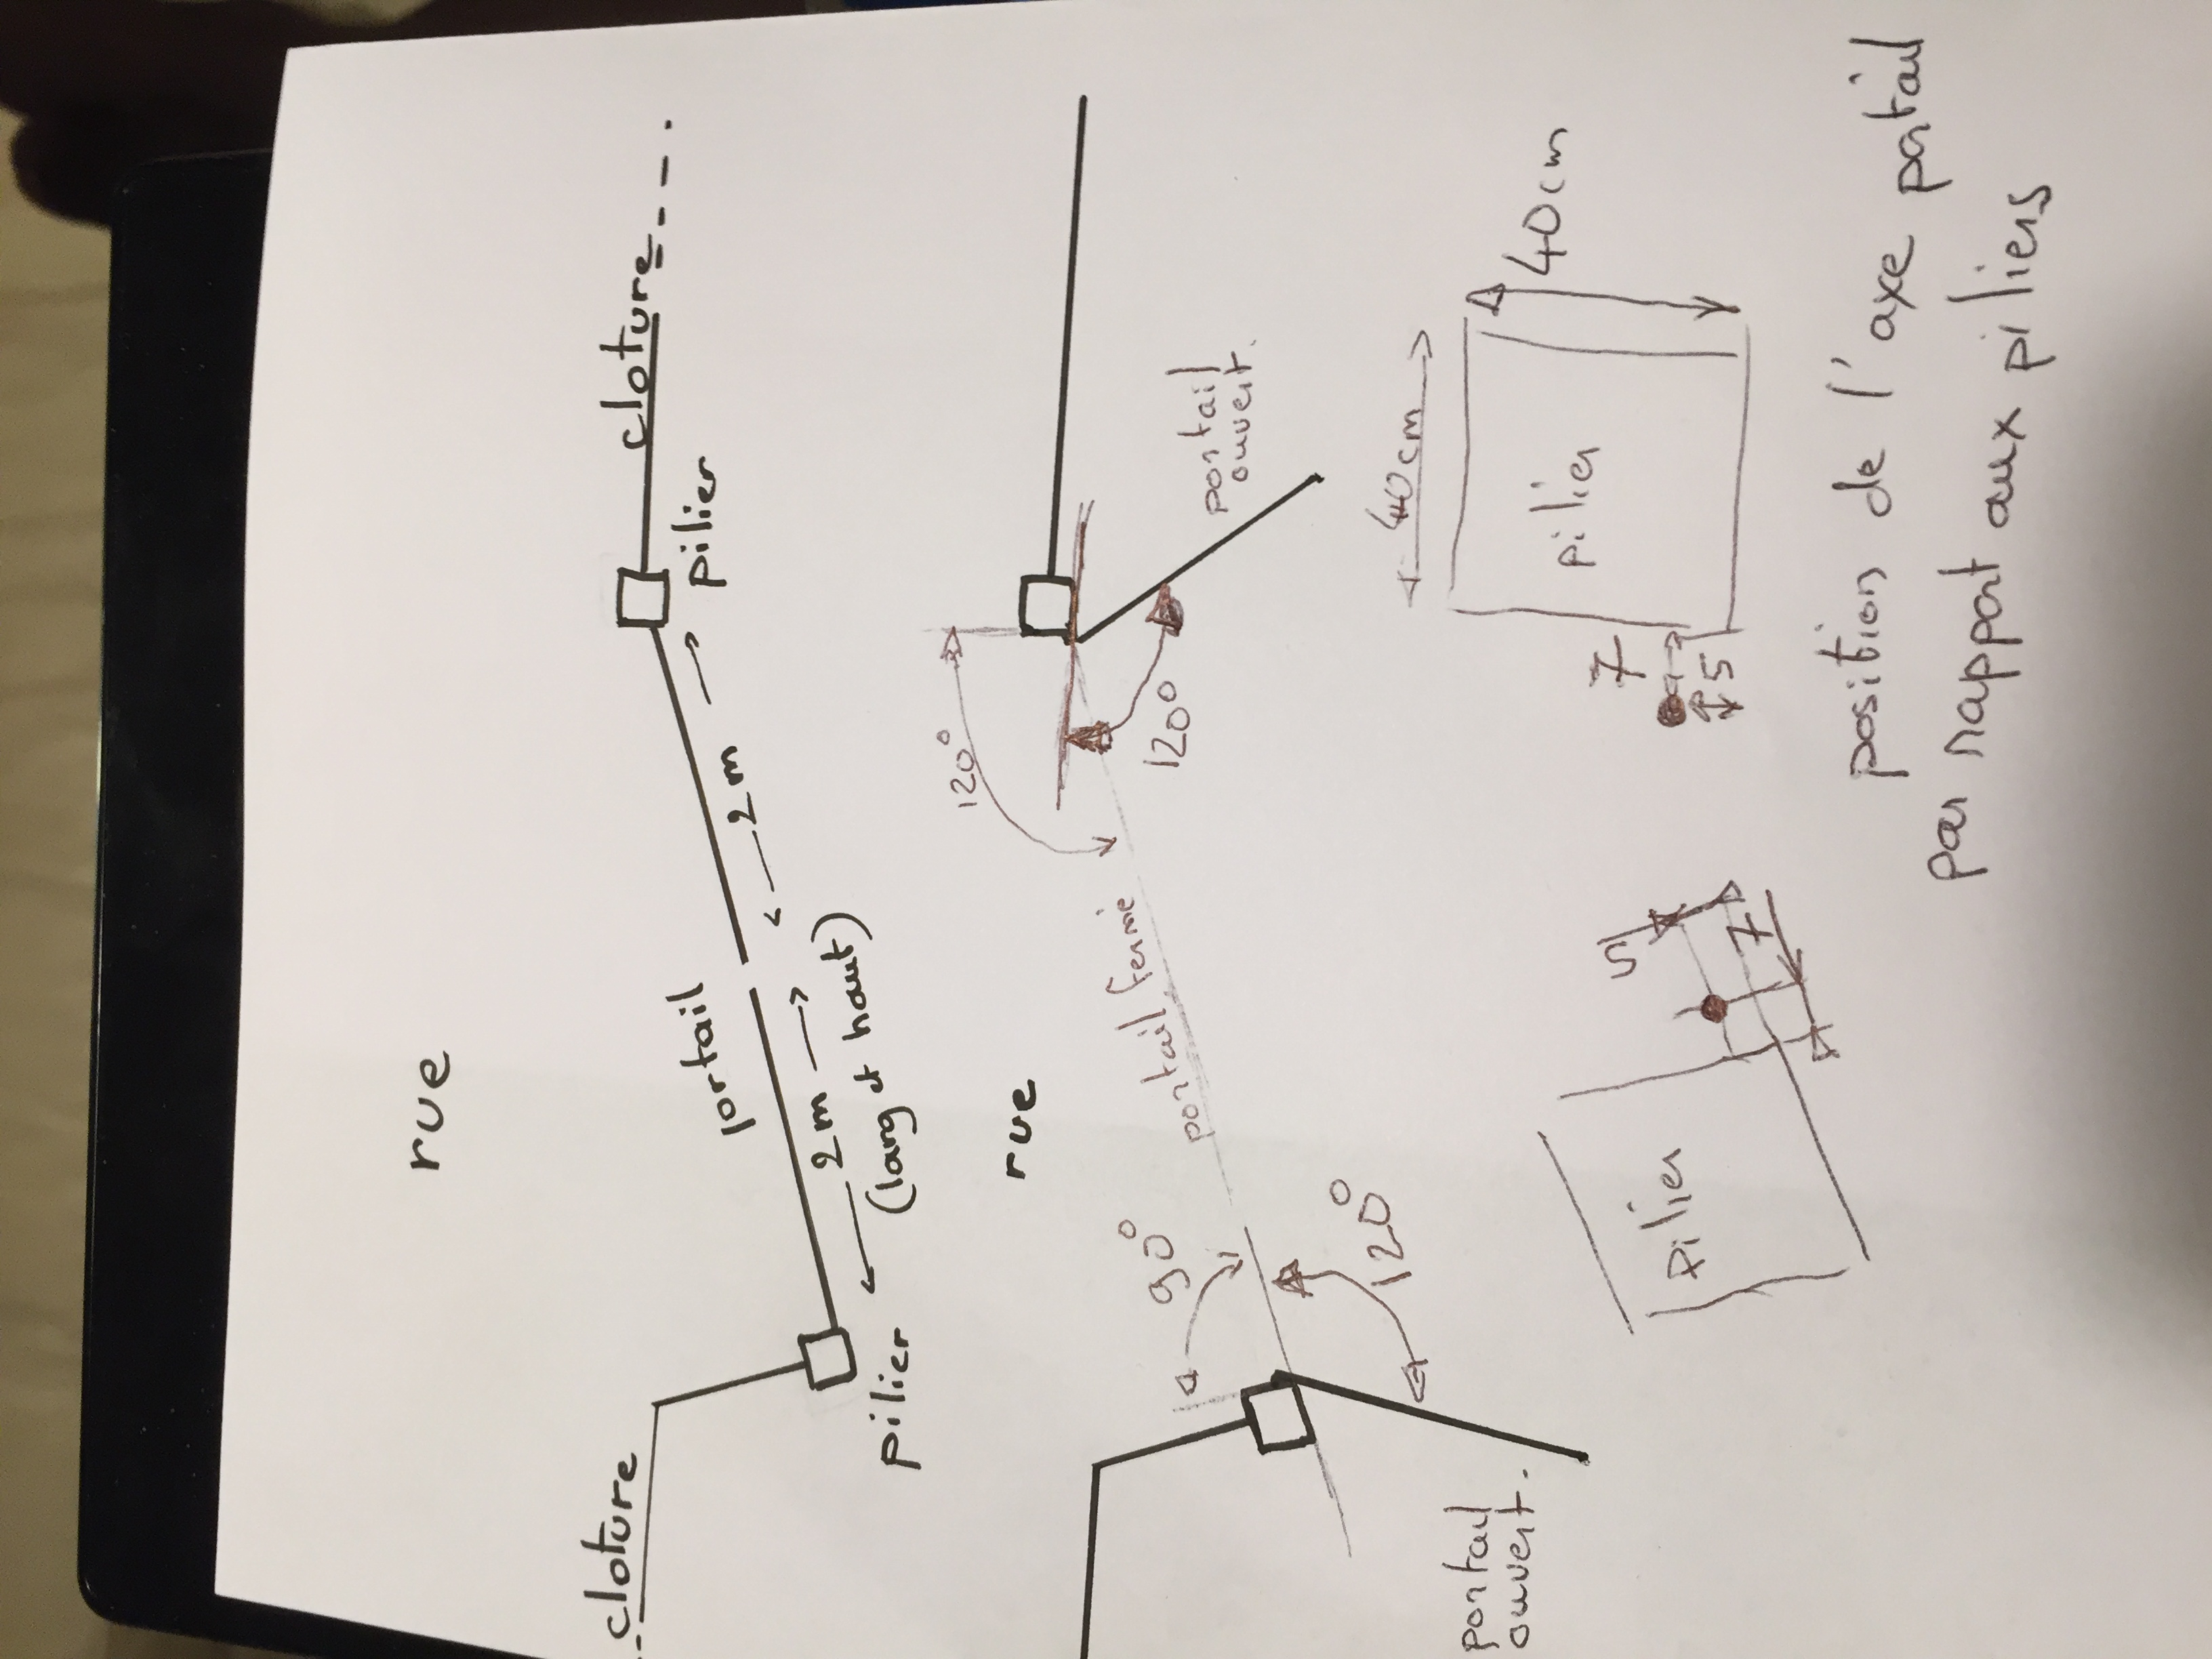 rue
cloture
portail
cloture
2m
2m
pilier
(larg et haut)
pilier
rue
90°
portail fermé
120°
120°
120°
portail
ouvert.
portail
ouvert.
40cm
40cm
pilier
7
5
pilier
5
7
position de l'axe portail
par rapport aux piliers